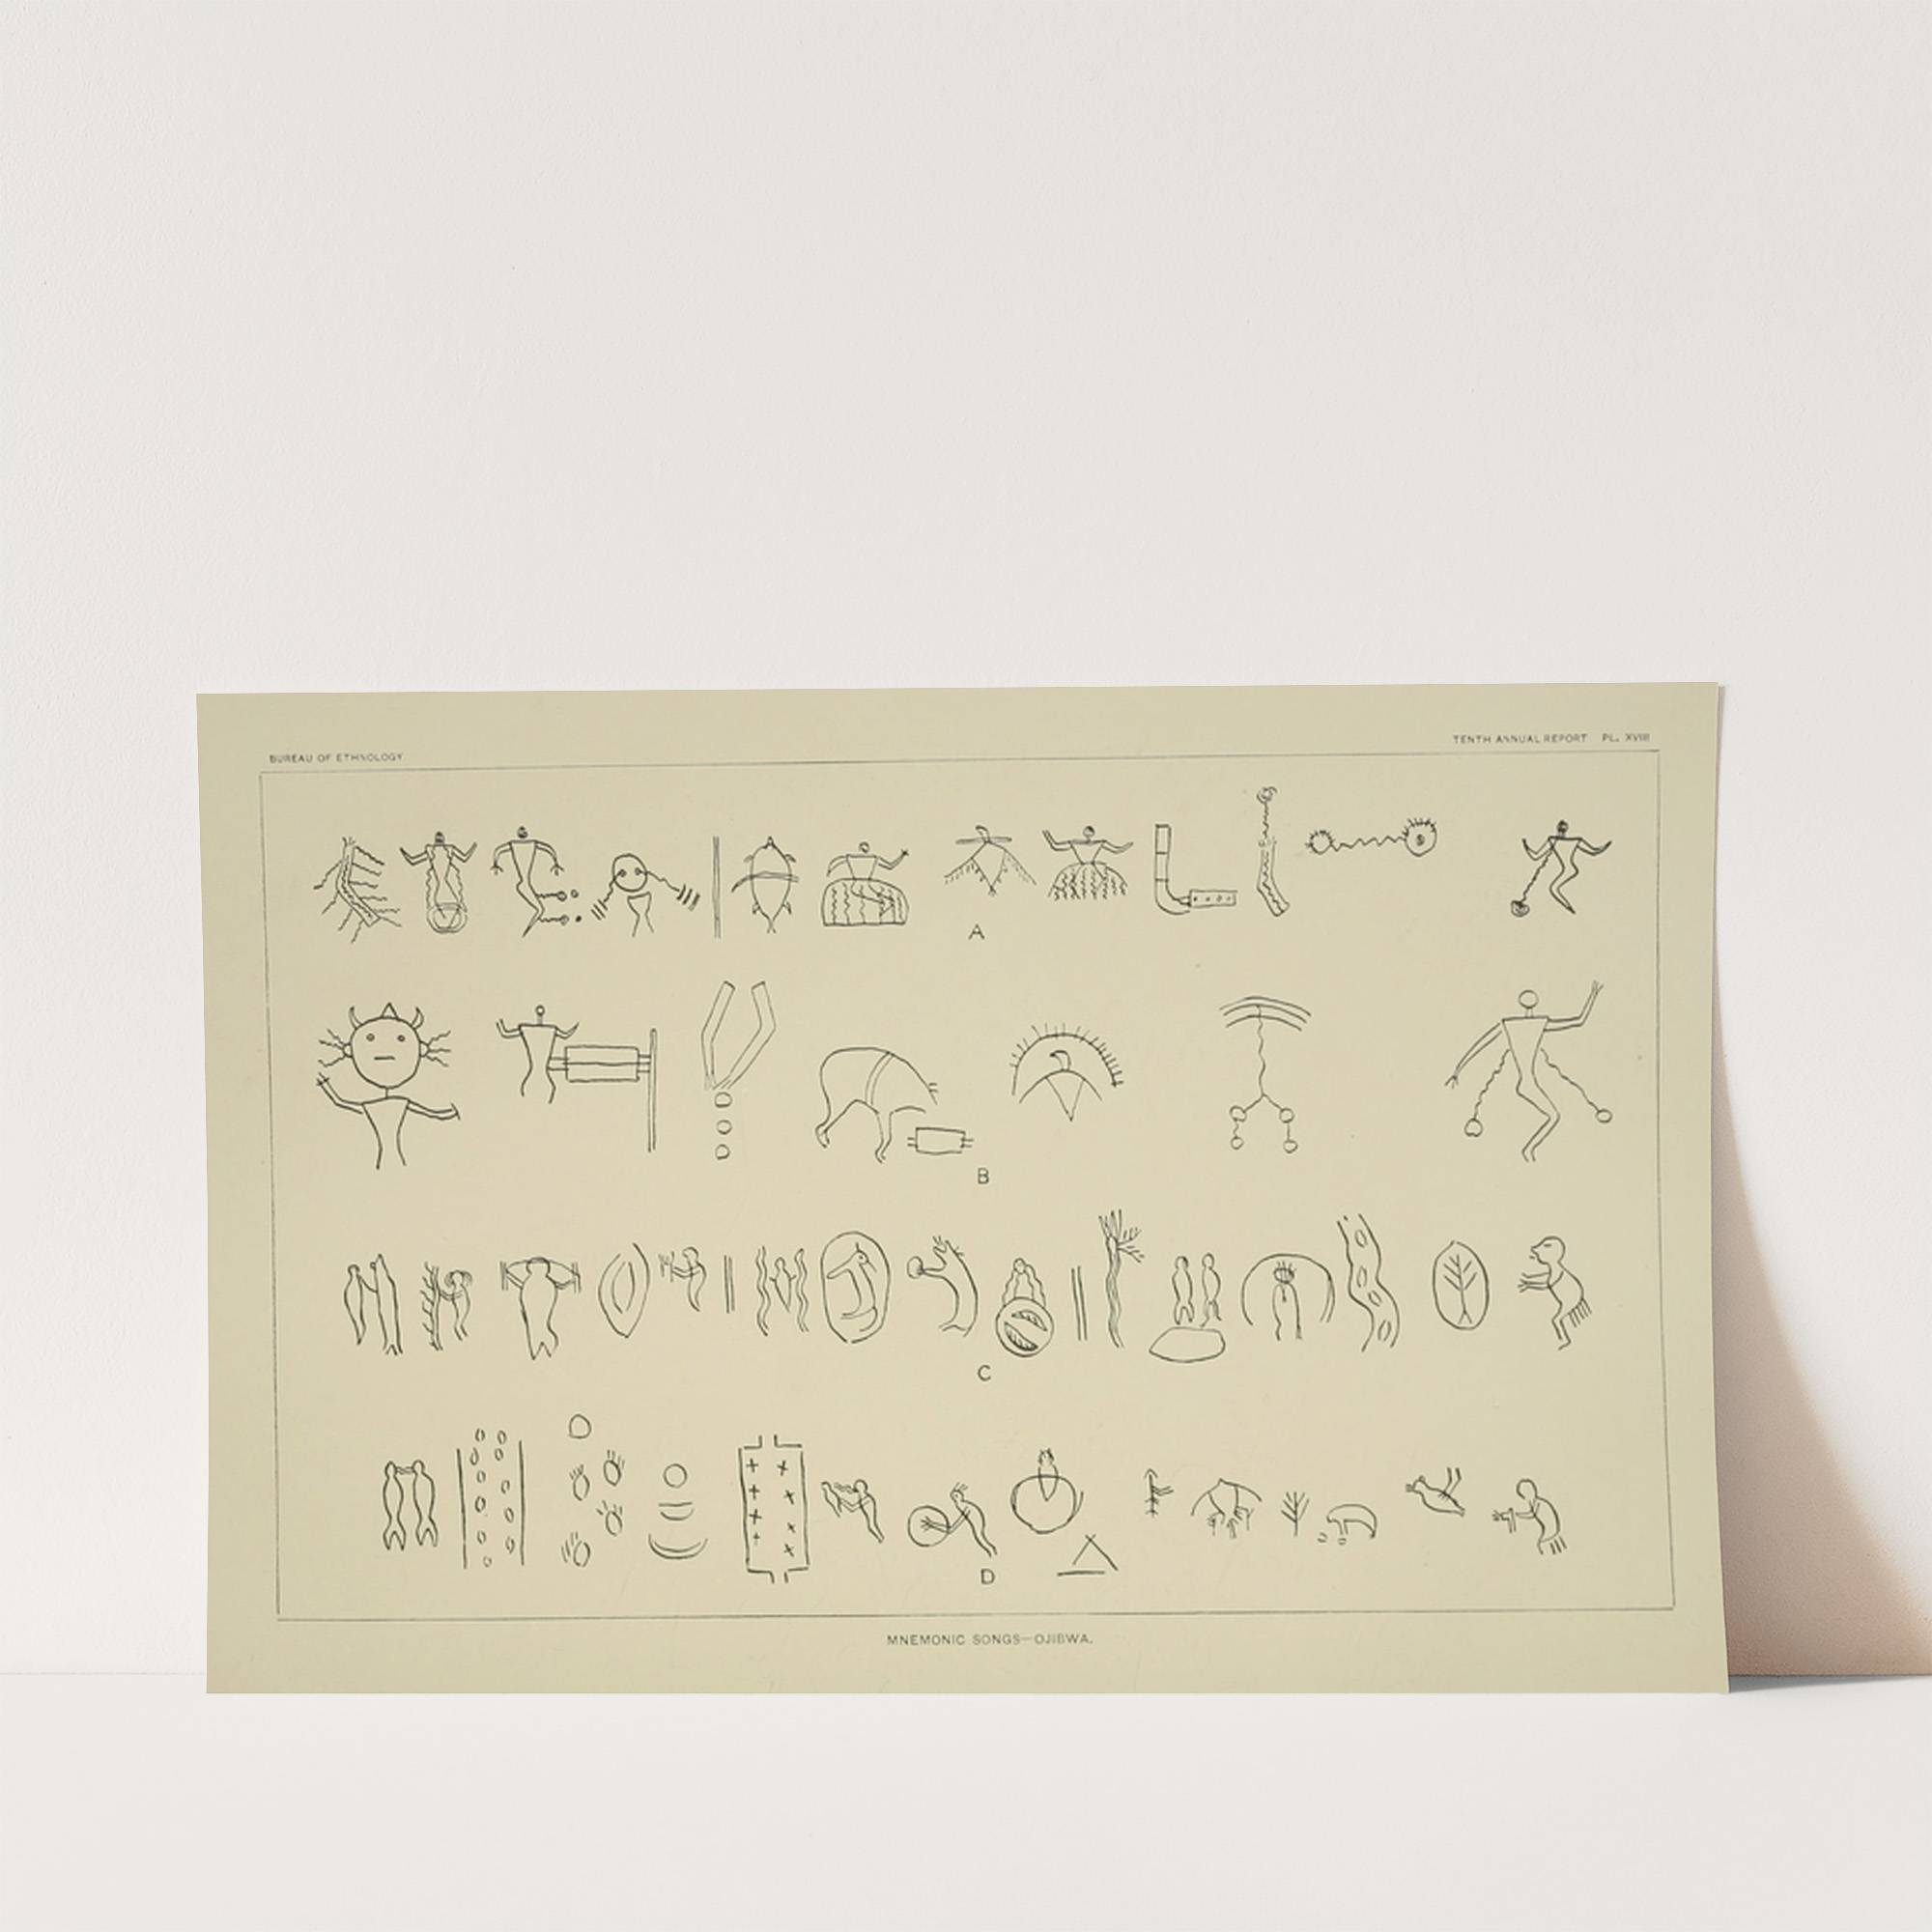 BUREAU OF ETHNOLOGY
TENTH ANNUAL REPORT PL. XVIII
A
B
C
D
MNEMONIC SONGS—OJIBWA.